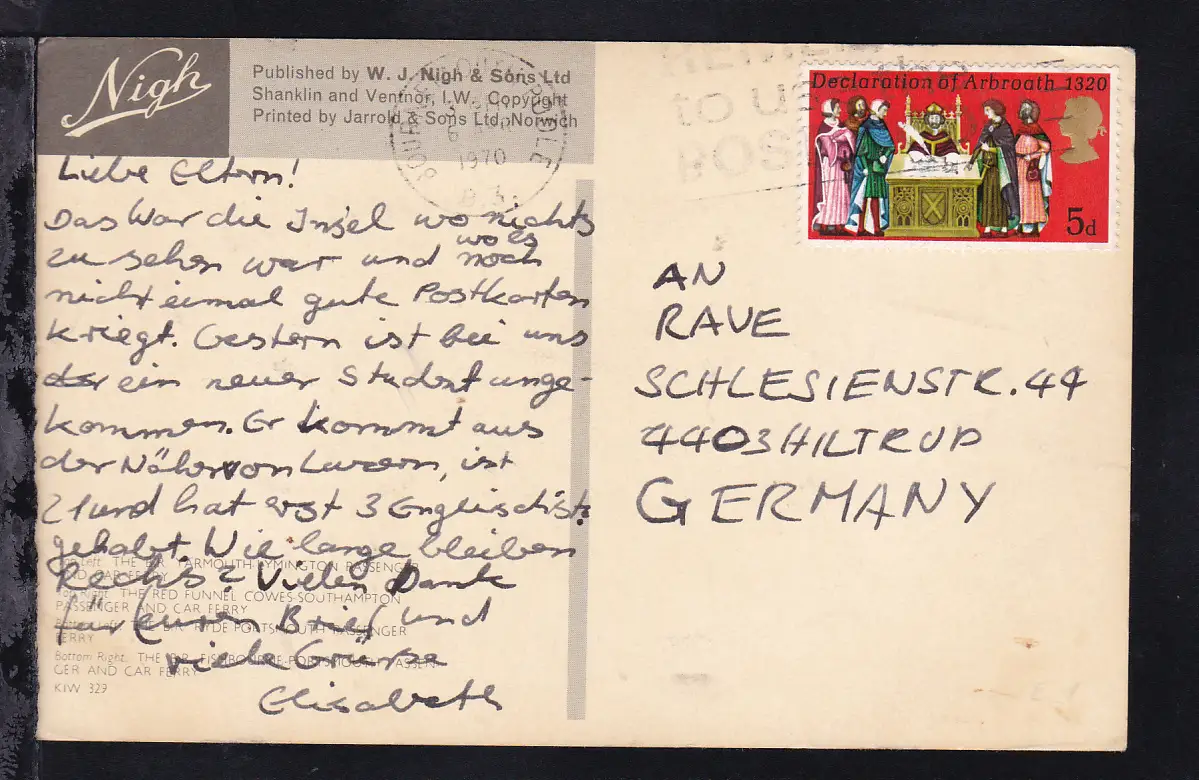 Nigh
Published by W. J. Nigh & Sons Ltd
Shanklin and Ventnor, I.W. Copyright
Printed by Jarrold & Sons Ltd, Norwich
Liebe Eltern!
Das war die Insel wo nichts
zu sehen war und wo es noch
nicht einmal gute Postkarten
kriegt. Gestern ist bei uns
der ein neuer Student ange-
kommen. Er kommt aus
der Nähe von Luzern, ist
21 und hat erst 3 Englischst.
gehabt. Wie lange bleiben
Rechs? Vielen Dank
für Euren Brief und
viele Grüsse
Elisabeth
THE B.R. YARMOUTH-LYMINGTON PASSENGER
AND CAR FERRY
Top Right: THE RED FUNNEL COWES-SOUTHAMPTON
PASSENGER AND CAR FERRY
Bottom Left: THE B.R. RYDE-PORTSMOUTH PASSENGER
FERRY
Bottom Right: THE B.R. FISHBOURNE-PORTSMOUTH PASSEN-
GER AND CAR FERRY
KIW 329
1970
to us
POS
Declaration of Arbroath 1320
5d
AN
RAVE
SCHLESIENSTR. 44
4403 HILTRUP
GERMANY